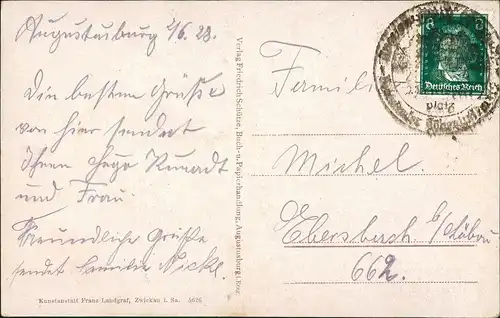 Augustusburg 2/6. 28.
Die besten Grüße
von hier sendet
Ihnen Hugo
und Frau.
Freundliche Grüße
sendet Familie Nickl.
Kunstanstalt Franz Landgraf, Zwickau i. Sa.
Verlag Friedrich Schütze, Buch- u. Papierhandlung, Augustusburg i. Erzg.
Familie
Michel.
Ebersbach b/Löbau
662.
Deutsches Reich